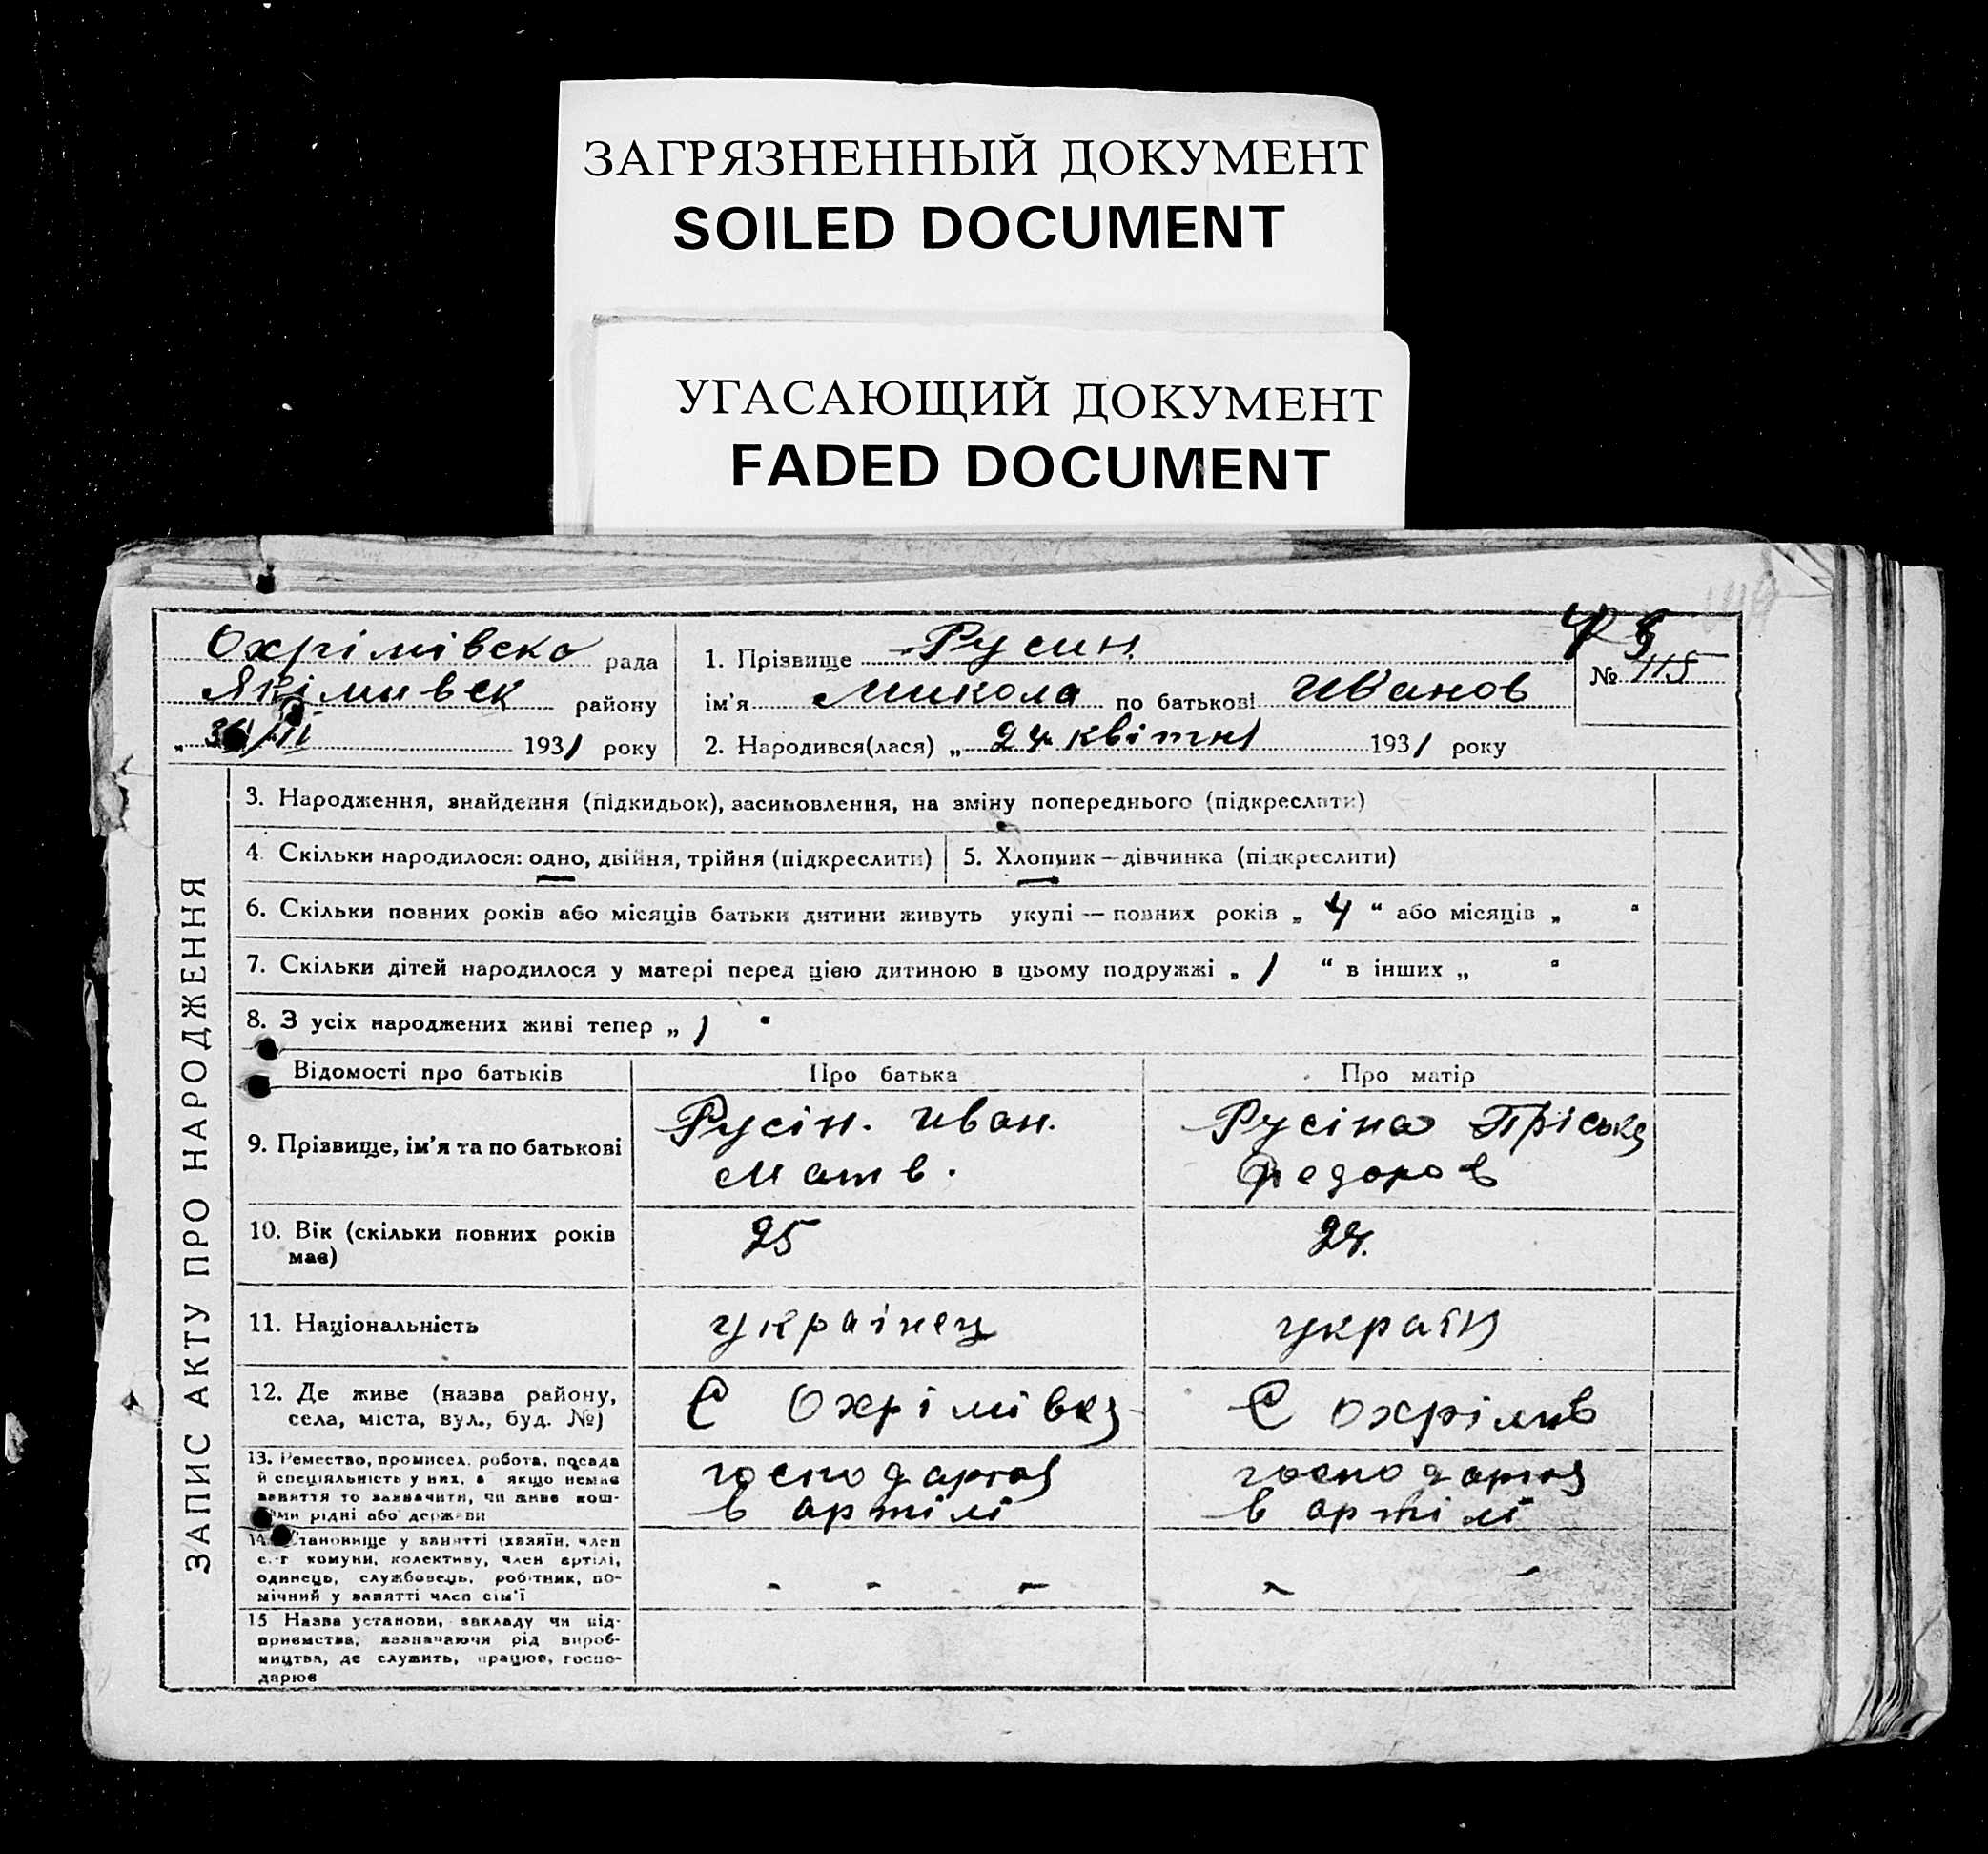 ЗАГРЯЗНЕННЫЙ ДОКУМЕНТ
SOILED DOCUMENT
УГАСАЮЩИЙ ДОКУМЕНТ
FADED DOCUMENT
Охрімівско рада
Якімивск району
1931 року
1. Прізвище Русин
ім'я Микола по батькові Иванов
2. Народився(лася) „ 24 квітня 1931 року
№ 115
ЗАПИС АКТУ ПРО НАРОДЖЕННЯ
3. Народження, знайдення (підкидьок), засиновлення, на зміну попереднього (підкреслити)
4. Скільки народилося: одно, двійня, трійня (підкреслити)
5. Хлопчик—дівчинка (підкреслити)
6. Скільки повних років або місяців батьки дитини живуть укупі — повних років „ 4 “ або місяців „ “
7. Скільки дітей народилося у матері перед цією дитиною в цьому подружжі „ 1 “ в інших „ “
8. З усіх народжених живі тепер „ 1 “
Відомості про батьків
Про батька
Про матір
9. Прізвище, ім'я та по батькові
Русін. Иван.
Матв.
Русіна Пріська
Федоров
10. Вік (скільки повних років
має)
25
24.
11. Національність
українец
україн
12. Де живе (назва району,
села, міста, вул., буд. №)
С Охрімівка
С Охрімив
13. Ремество, промисел, робота, посада
й спеціяльність у них, а якщо немає
заняття то зазначити, чи живе кош-
рідні або держави
господарюя
в артілі
господарюя
в артілі
14. Становище у занятті (хазяїн, член
с.-г комуни, колективу, член артілі,
одинець, службовець, робітник, по-
мічний у занятті член сім'ї
- - - -
- -
15 Назва установи, закладу чи під-
приємства, зазначаючи рід вироб-
ництва, де служить, працює, госпо-
дарює